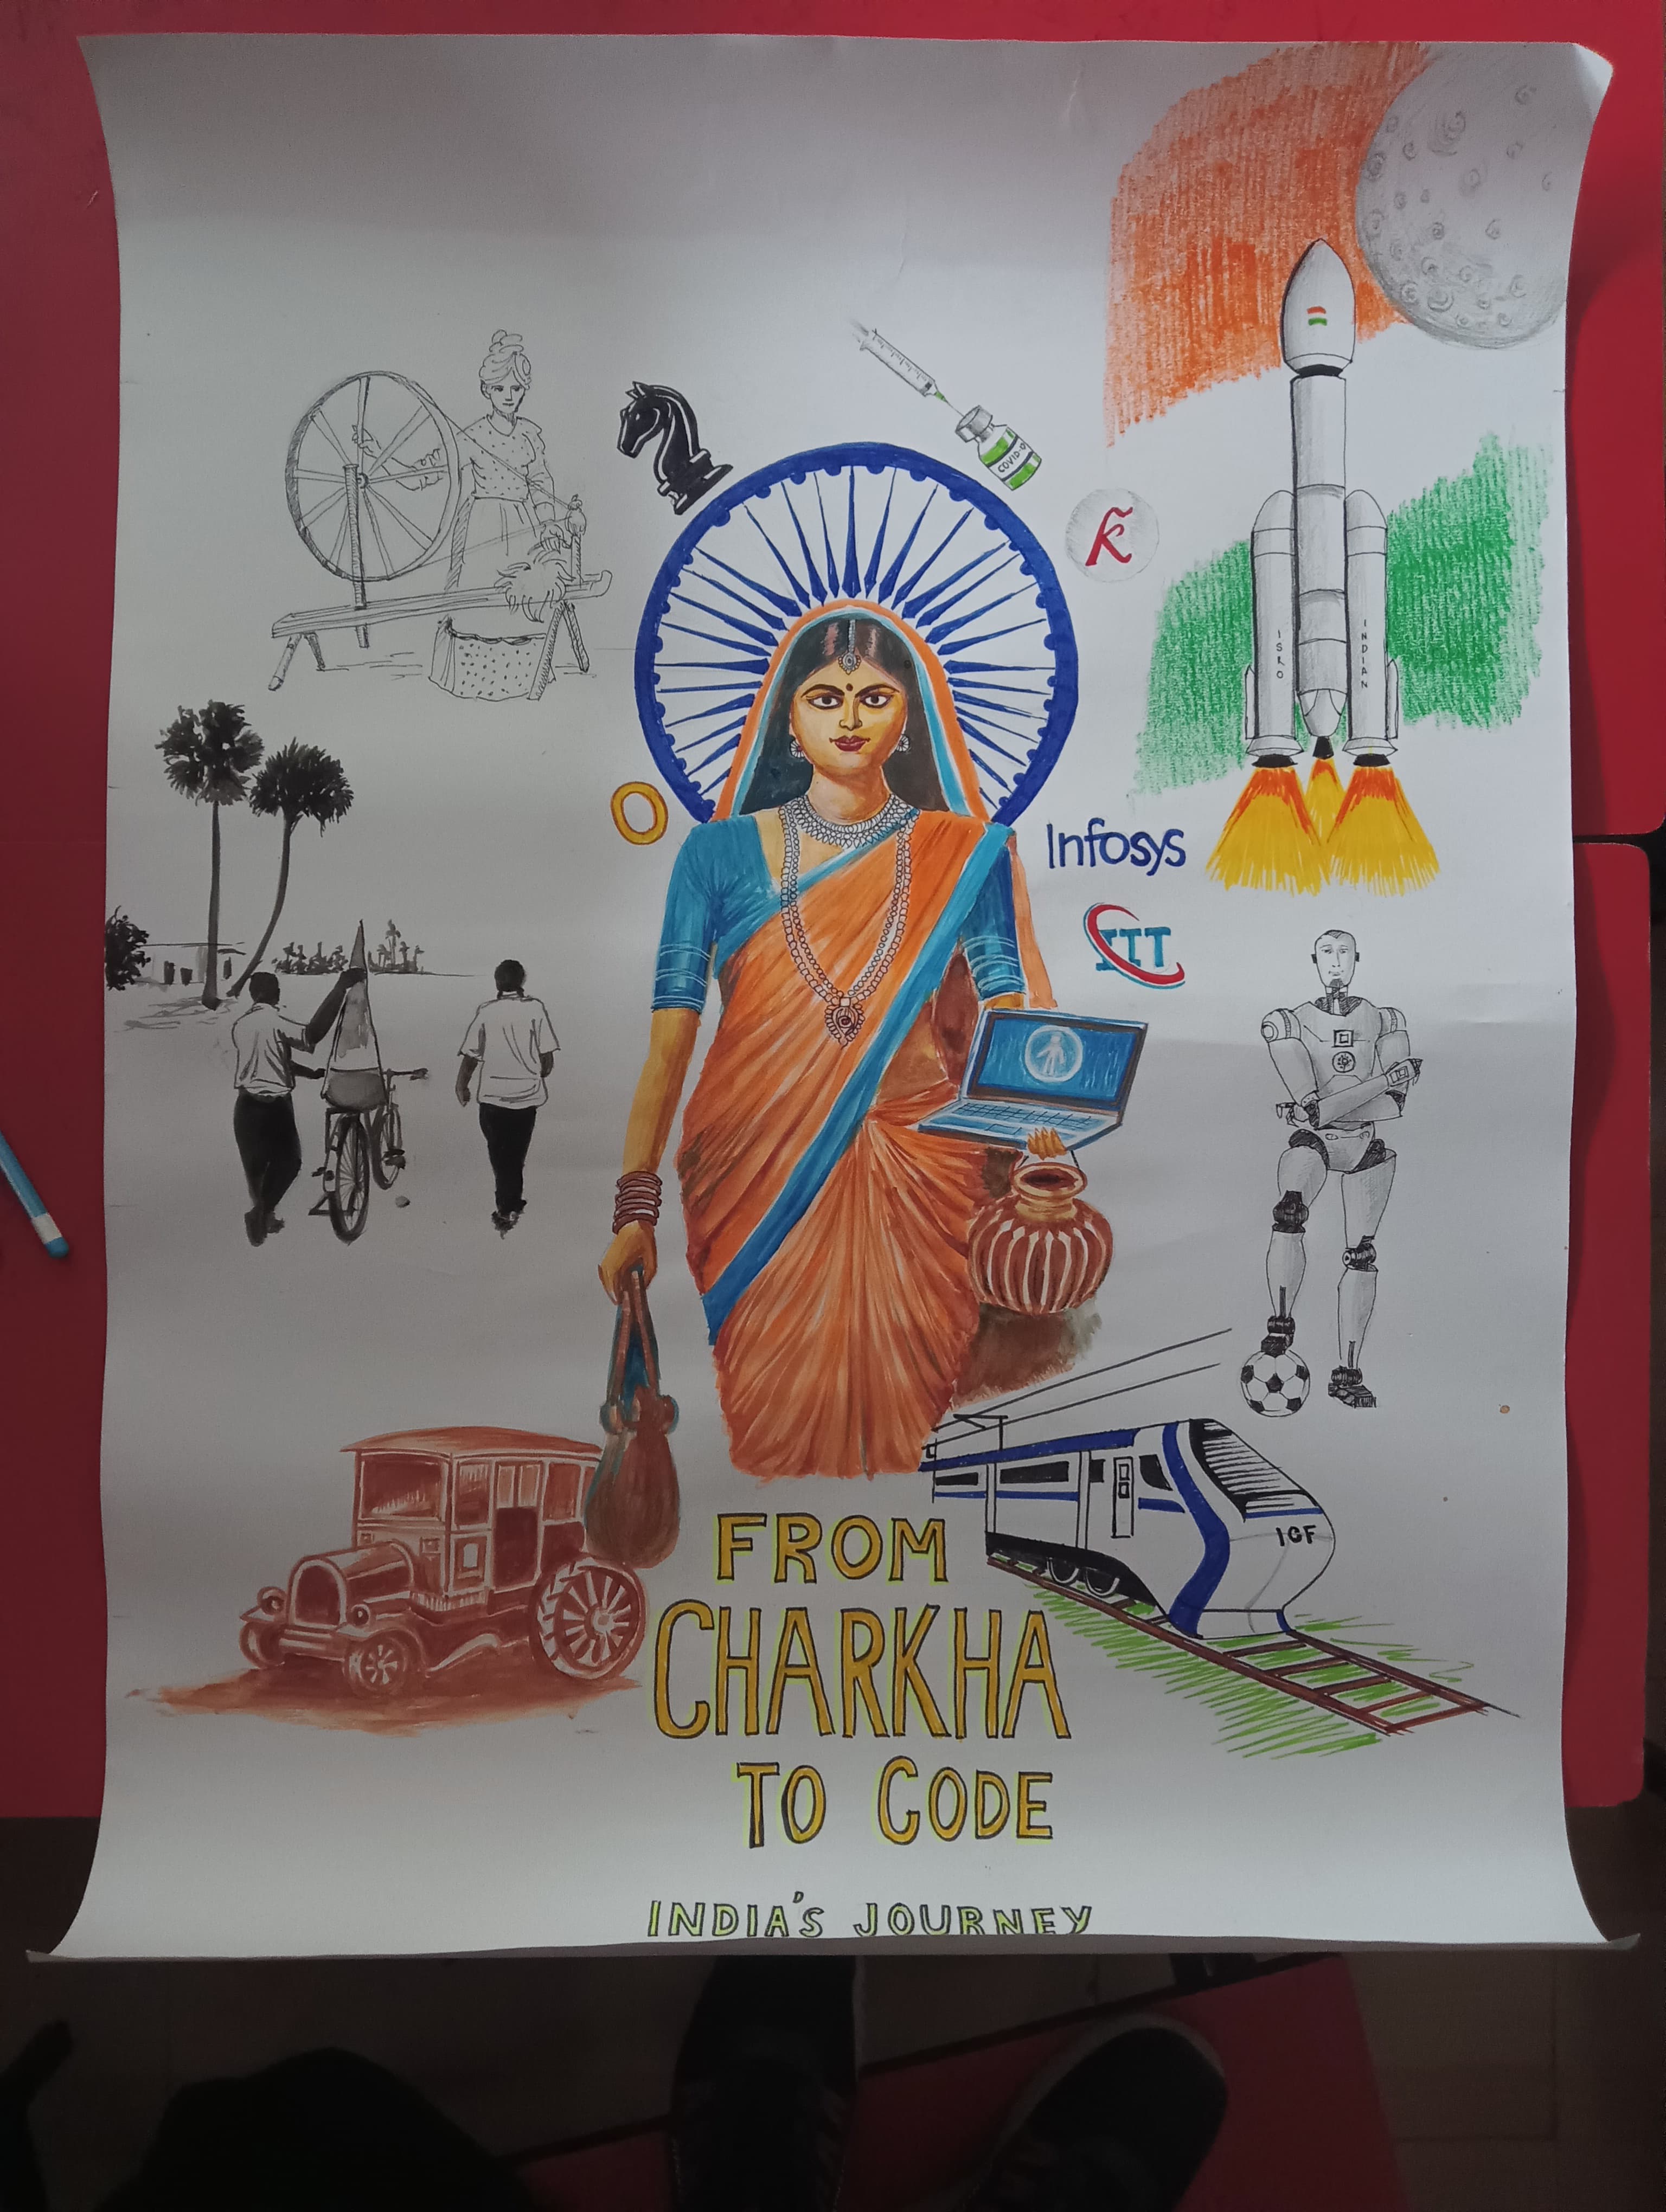 COVID-19
k
ISRO
INDIAN
O
Infosys
IIT
IGF
FROM
CHARKHA
TO CODE
INDIA'S JOURNEY